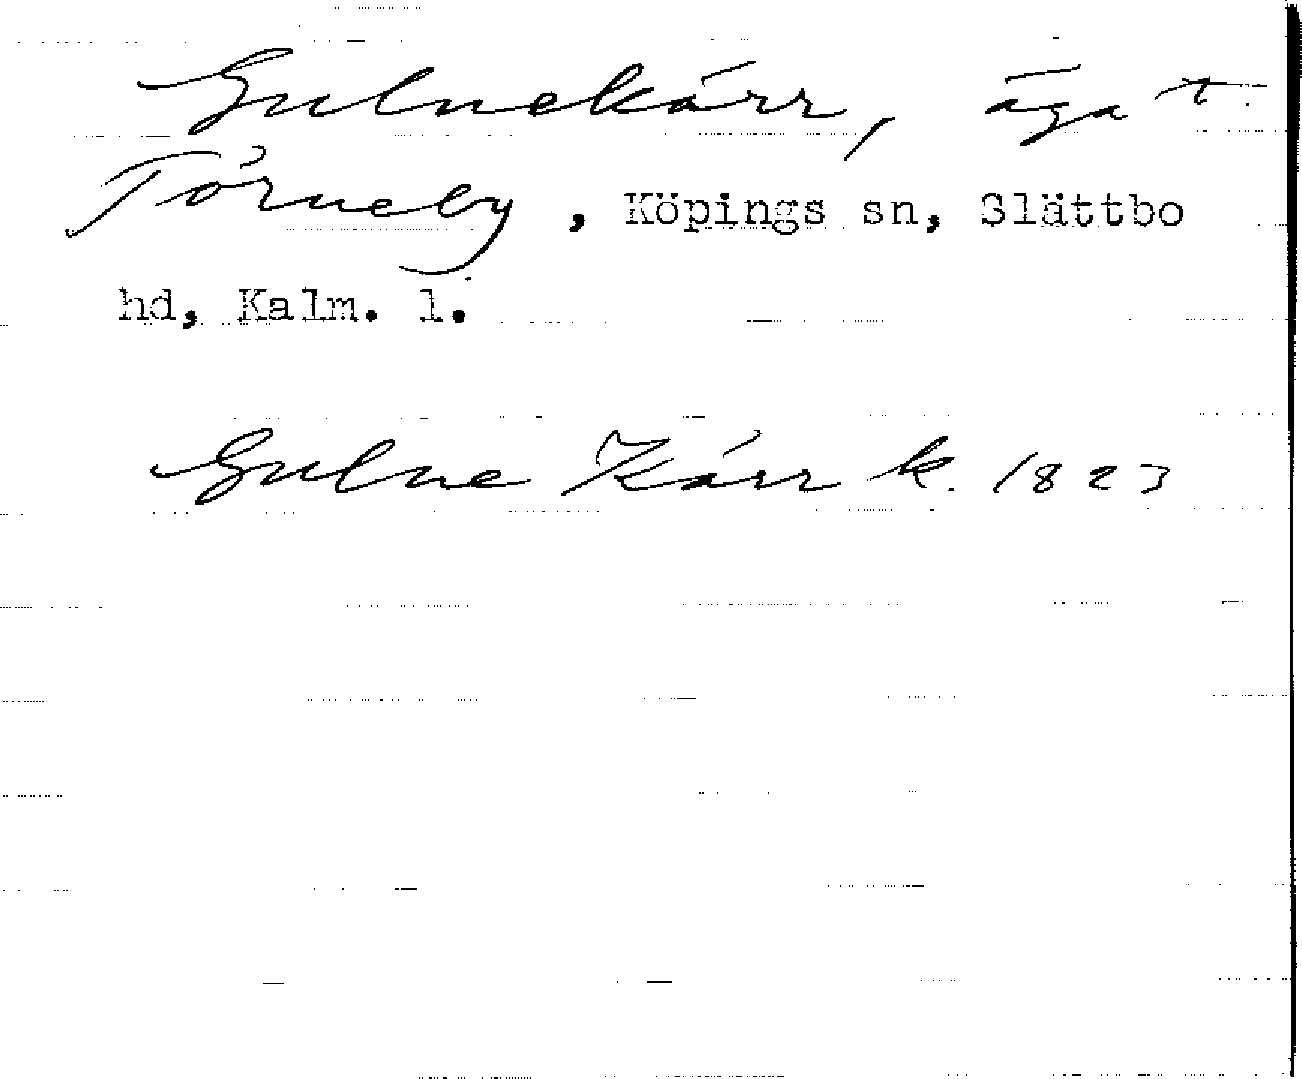 Gulnekärr, äga t.
Törneby, Köpings sn, Slättbo
hd, Kalm. l.
Gulne Kärr k. 1823